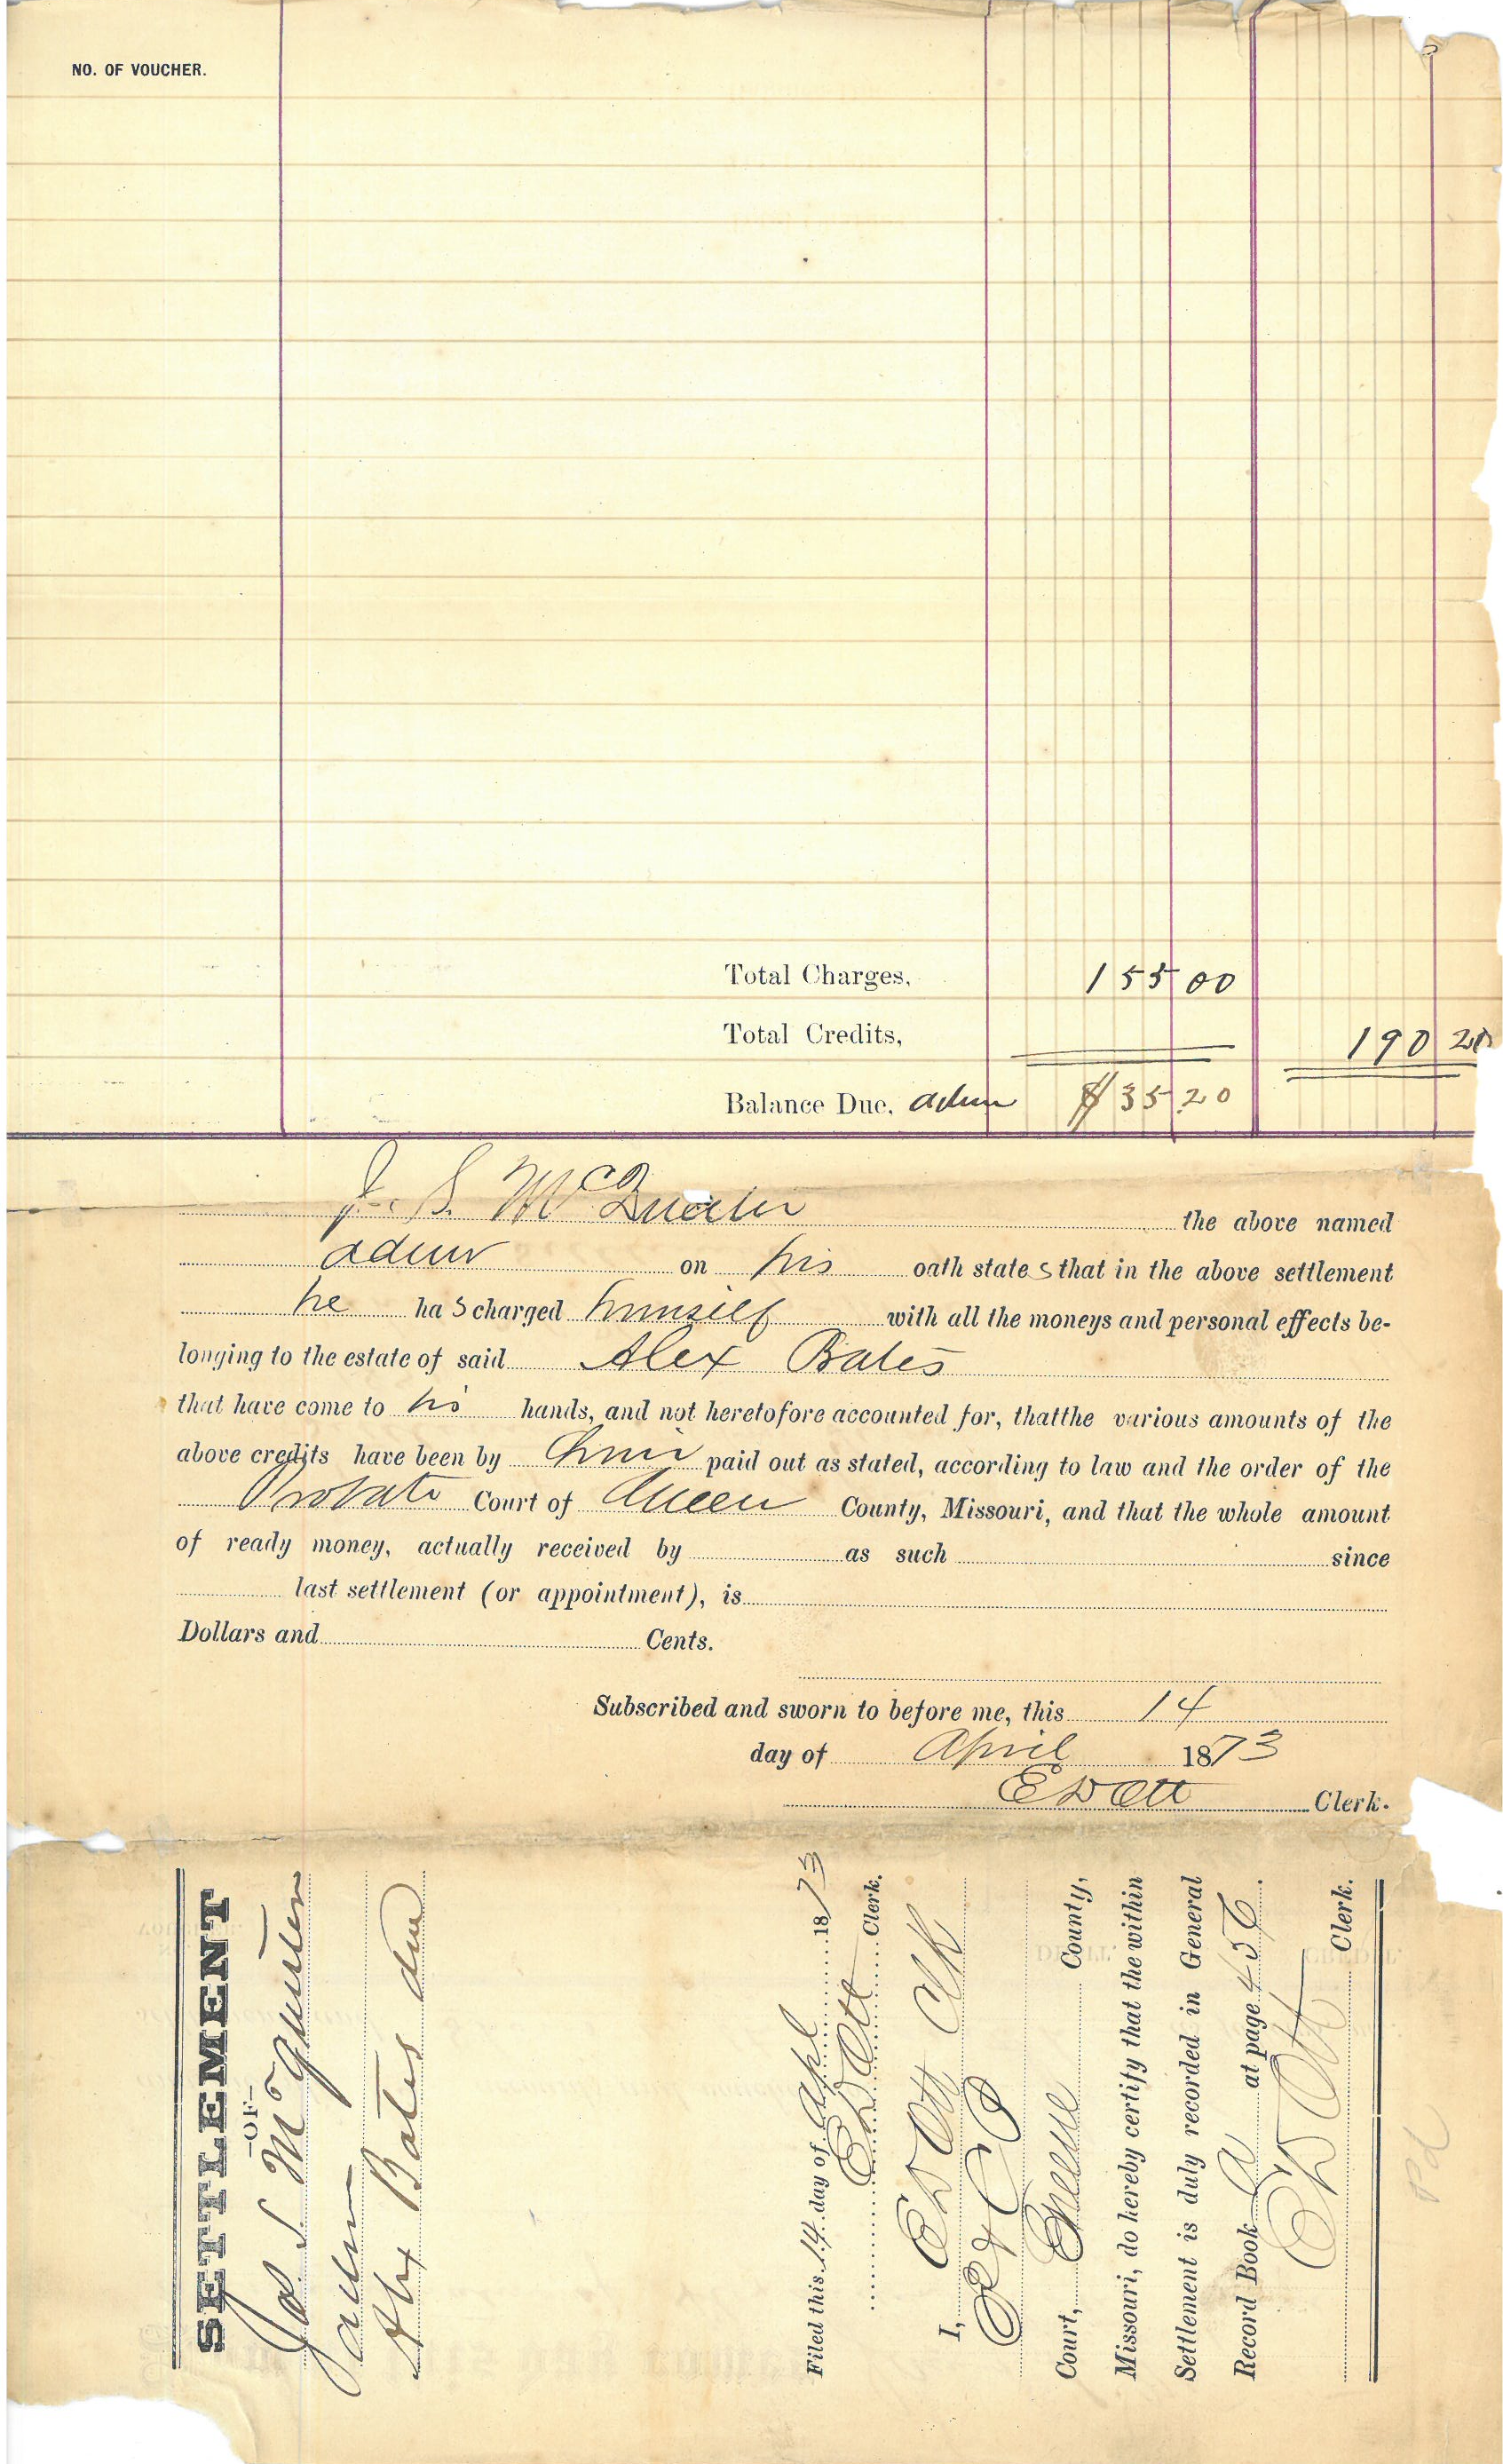 NO. OF VOUCHER.
Total Charges, 155 00
Total Credits, 190 20
Balance Due, adm $ 35 20
J. S. McQuerter the above named
admr on his oath states that in the above settlement
he has charged himself with all the moneys and personal effects be-
longing to the estate of said Alex Bates
that have come to his hands, and not heretofore accounted for, thatthe various amounts of the
above credits have been by him paid out as stated, according to law and the order of the
Probate Court of Green County, Missouri, and that the whole amount
of ready money, actually received by as such since
last settlement (or appointment), is
Dollars and Cents.
Subscribed and sworn to before me, this 14
day of April 1873
E D Ott Clerk.
SETTLEMENT
—OF—
Jas S McQuerter
admr
Alex Bates decd
Filed this 14 day of Apl 1873
E D Ott Clerk.
I, E D Ott Clk
Court, Greene County,
Missouri, do hereby certify that the within
Settlement is duly recorded in General
Record Book A at page 456.
E D Ott Clerk.
Pd